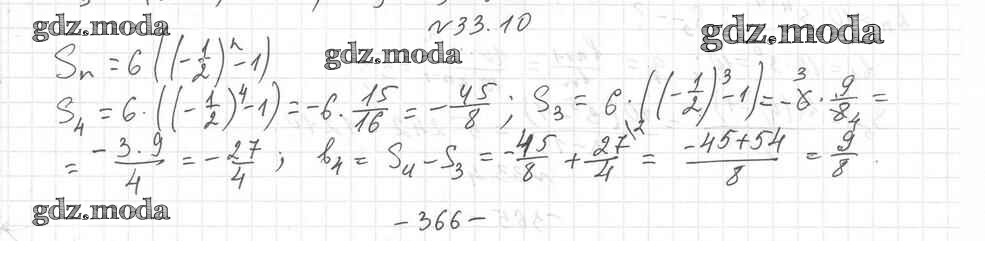 gdz.moda
№33.10
gdz.moda
Sₙ = 6((-1/2)ⁿ-1)
gdz.moda
S₄ = 6·((-1/2)⁴-1) = -6·15/16 = -45/8; S₃ = 6·((-1/2)³-1) = -6³·9/8₄ =
= -3·9/4 = -27/4; b₄ = S₄-S₃ = -45/8 + 27\²/4 = -45+54/8 = 9/8.
gdz.moda
-366-